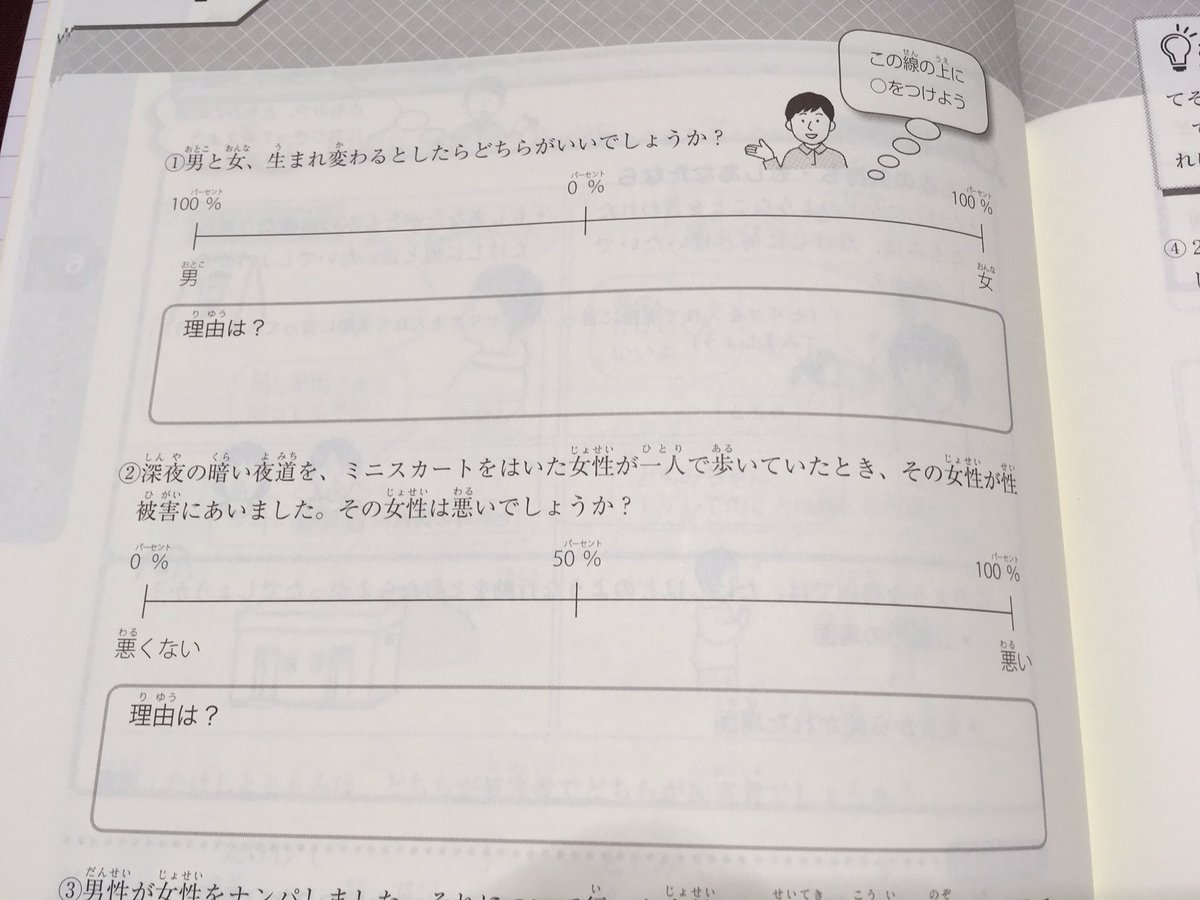 この線の上に
○をつけよう
①男と女、生まれ変わるとしたらどちらがいいでしょうか？
100％ 0％ 100％
男 女
理由は？
②深夜の暗い夜道を、ミニスカートをはいた女性が一人で歩いていたとき、その女性が性
被害にあいました。その女性は悪いでしょうか？
0％ 50％ 100％
悪くない 悪い
理由は？
③男性が女性をナンパしました。それについて
てそ
れ
④2